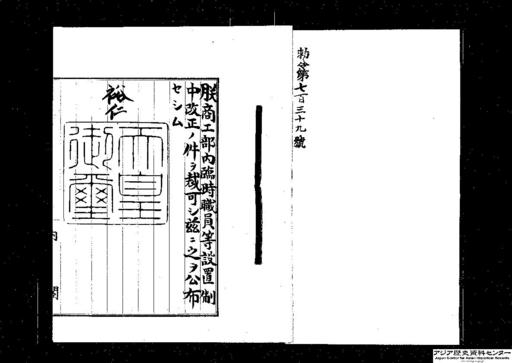 勅令第七百三十九號
朕商工部內臨時職員等設置制
中改正ノ件ヲ裁可シ茲ニ之ヲ公布
セシム
裕仁
天皇
御璽
內閣
アジア歴史資料センター
Japan Center for Asian Historical Records